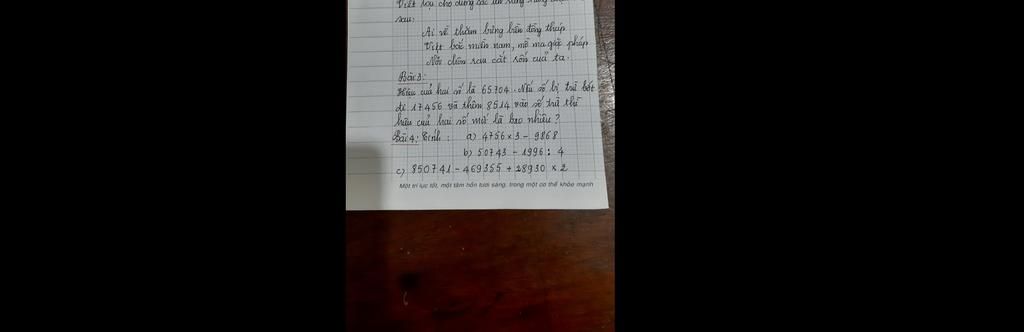 Viết lại cho đúng các tên riêng
sau:
Ai về thăm bưng biền đồng tháp
Việt bắc miền nam, mồ ma giặc pháp
Nơi chôn rau cắt rốn của ta.
Bài 3:
Hiệu của hai số là 65704. Nếu số bị trừ bớt
đi 17456 và thêm 8514 vào số trừ thì
hiệu của hai số mới là bao nhiêu?
Bài 4: Tính: a) 4756 x 3 - 9868
b) 50743 - 1996 : 4
c) 850741 - 469355 + 28930 x 2
Một trí lực tốt, một tâm hồn tươi sáng, trong một cơ thể khỏe mạnh